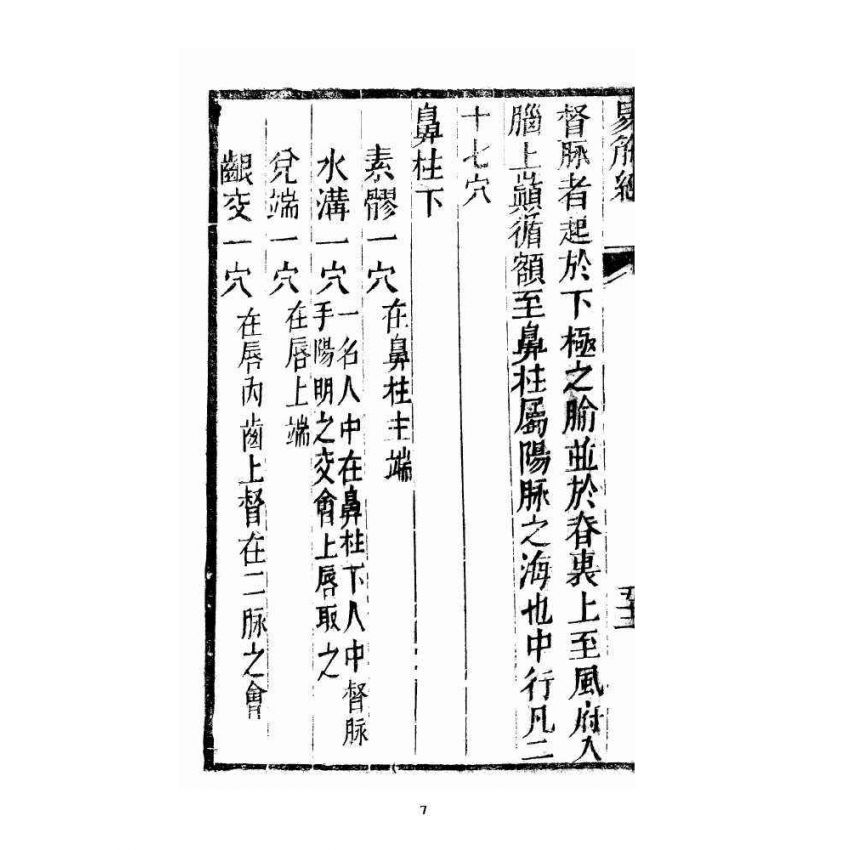 易筋經
督脉者起於下極之腧並於脊裏上至風府入
腦上巔循額至鼻柱屬陽脉之海也中行凡二
十七穴
鼻柱下
素髎一穴 在鼻柱主端
水溝一穴 一名人中在鼻柱下人中督脉
手陽明之交會上唇取之
兌端一穴 在唇上端
齦交一穴 在唇內齒上督在二脉之會
7